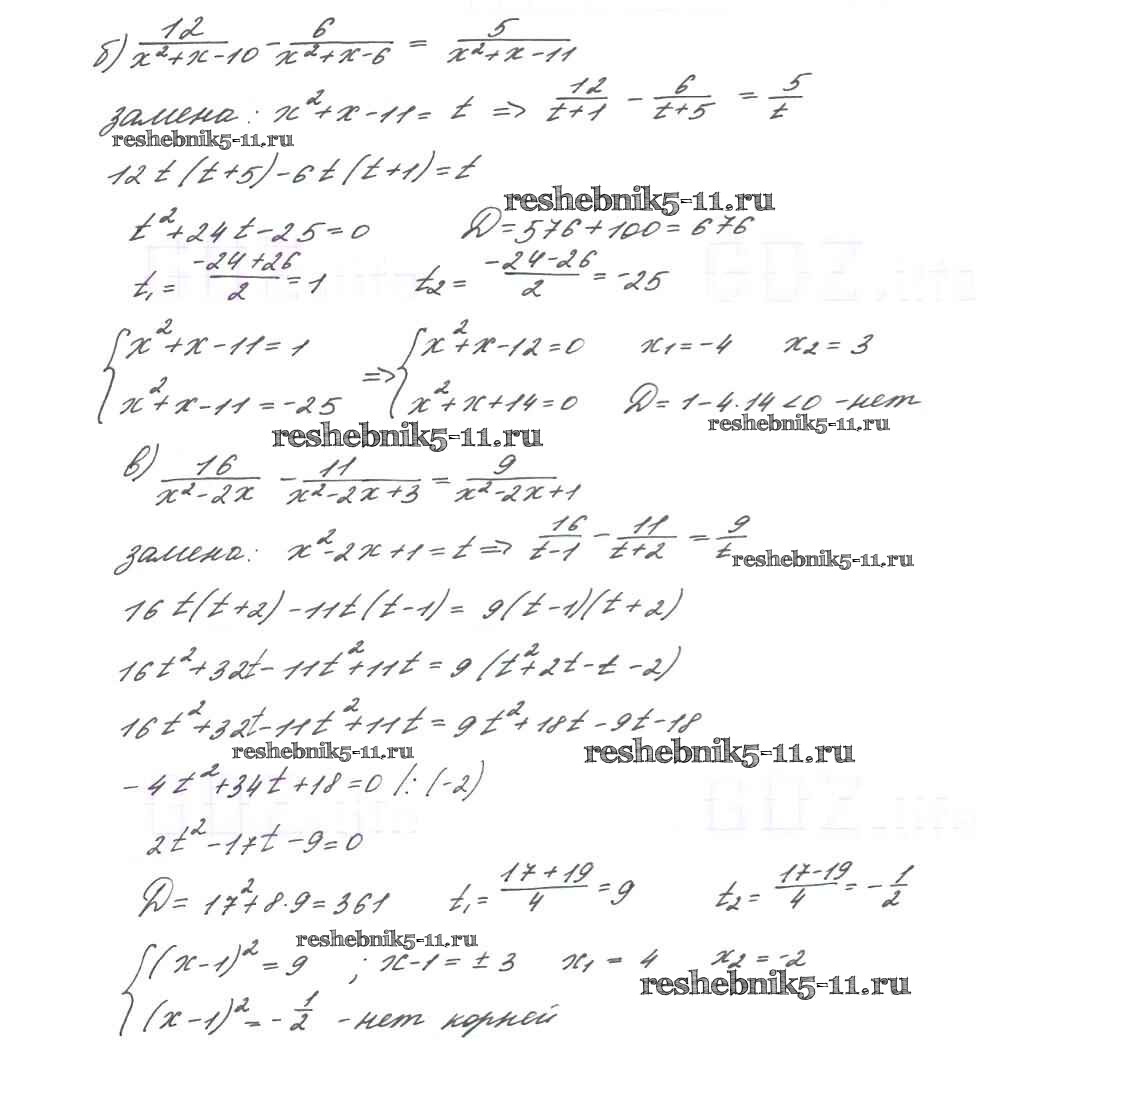 б) 12/(x²+x-10) - 6/(x²+x-6) = 5/(x²+x-11)
замена: x²+x-11 = t => 12/(t+1) - 6/(t+5) = 5/t
reshebnik5-11.ru
12t(t+5)-6t(t+1)=t
reshebnik5-11.ru
t²+24t-25=0 D=576+100=676
t₁= (-24+26)/2 = 1 t₂= (-24-26)/2 = -25
{ x²+x-11=1 => { x²+x-12=0 x₁=-4 x₂=3
x²+x-11=-25 x²+x+14=0 D=1-4·14<0 -нет
reshebnik5-11.ru
reshebnik5-11.ru
в) 16/(x²-2x) - 11/(x²-2x+3) = 9/(x²-2x+1)
замена: x²-2x+1=t => 16/(t-1) - 11/(t+2) = 9/t
reshebnik5-11.ru
16t(t+2)-11t(t-1)= 9(t-1)(t+2)
16t²+32t-11t²+11t=9(t²+2t-t-2)
16t²+32t-11t²+11t=9t²+18t-9t-18
reshebnik5-11.ru
reshebnik5-11.ru
-4t²+34t+18=0 /:(-2)
2t²-17t-9=0
D=17²+8·9=361 t₁= (17+19)/4 = 9 t₂= (17-19)/4 = -1/2
reshebnik5-11.ru
{ (x-1)²=9 ; x-1=±3 x₁=4 x₂=-2
reshebnik5-11.ru
(x-1)²=-1/2 -нет корней
GDZ.info
GDZ.info
GDZ.info
GDZ.info